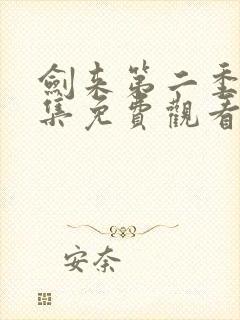 劍来第二季
集免費觀看
安奈